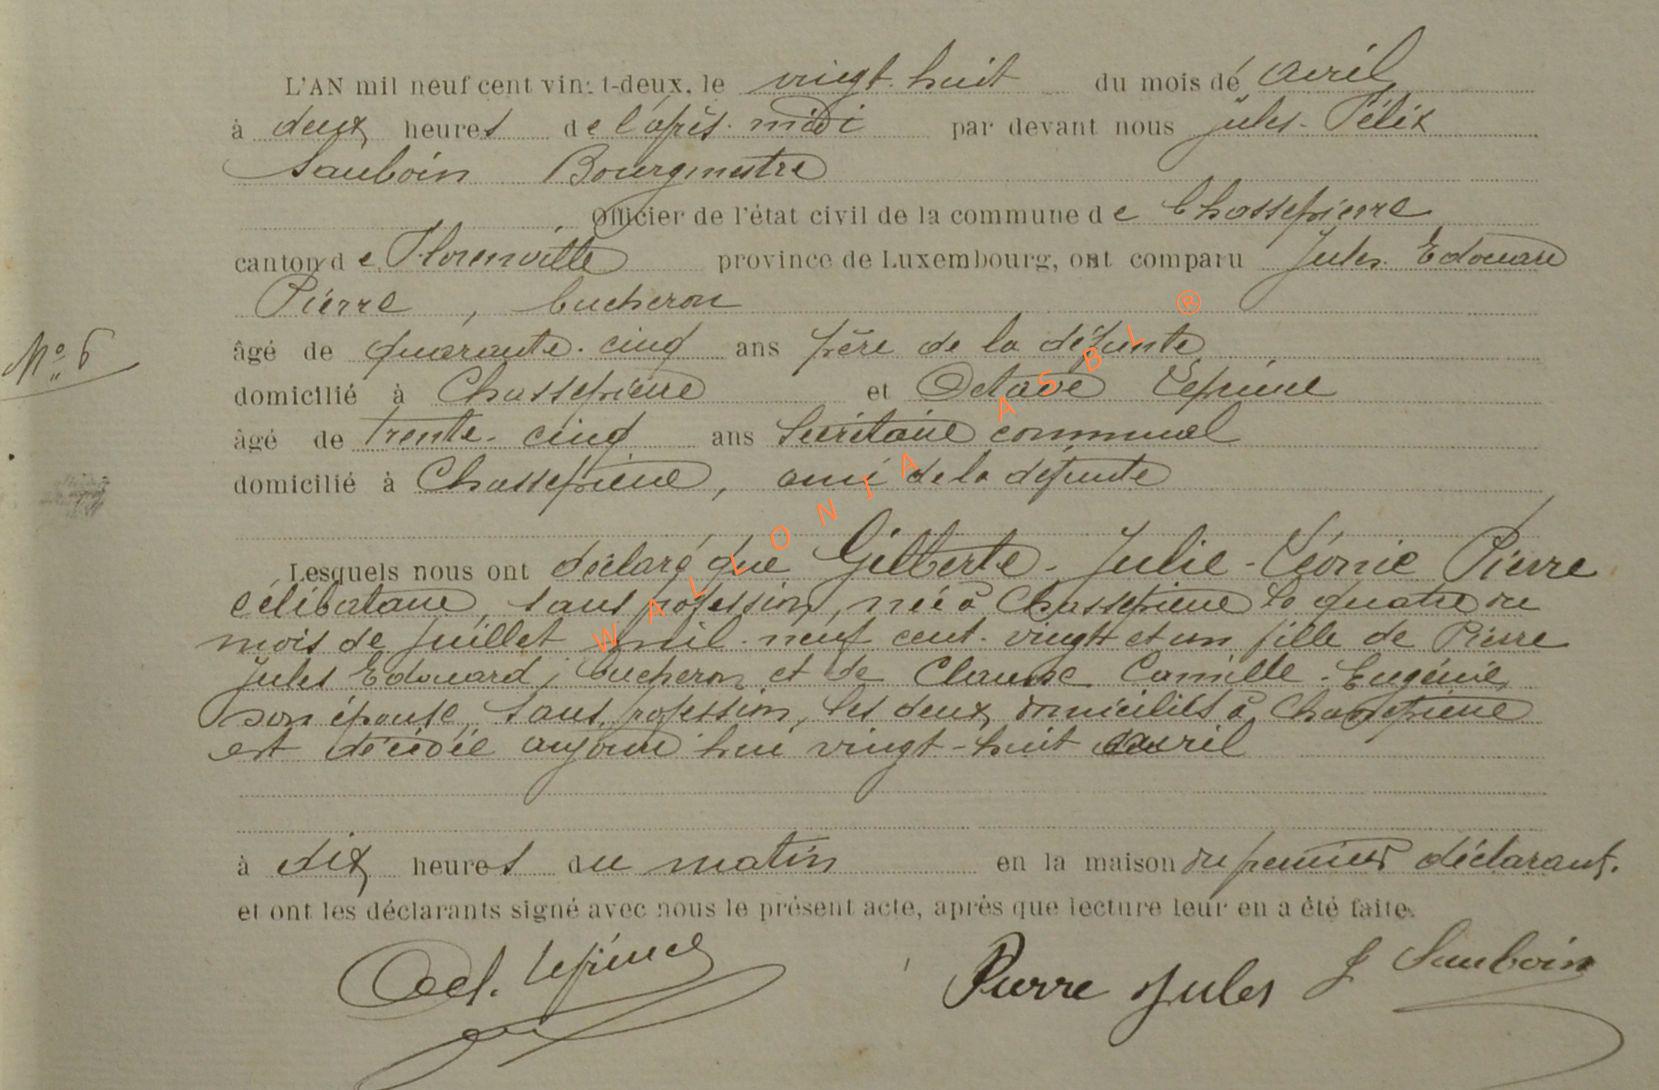 L'AN mil neuf cent vingt-deux, le vingt-huit du mois de Avril
à deux heures de l'après-midi par devant nous Jules-Félix
Sauboin Bourgmestre
Officier de l'état civil de la commune de Chassepierre
canton de Florenville province de Luxembourg, ont comparu Jules Edouard
Pierre, bucheron
âgé de quarante-cinq ans père de la défunte
domicilié à Chassepierre et Octave Lepine
âgé de trente-cinq ans Secrétaire communal
domicilié à Chassepierre, ami de la défunte
Nº 6
Lesquels nous ont déclaré que Gilberte-Julie-Léonie Pierre
célibataire, sans profession, née à Chassepierre le quatre du
mois de juillet mil-neuf cent-vingt et un fille de Pierre
Jules Edouard, bucheron et de Clausse Camille-Eugénie,
son épouse, sans profession, les deux domiciliés à Chassepierre
est décédée aujourd'hui vingt-huit avril
à dix heures du matin en la maison du premier déclarant.
et ont les déclarants signé avec nous le présent acte, après que lecture leur en a été faite.
Pierre Jules J Sauboin
WALLONIA ASBL ®